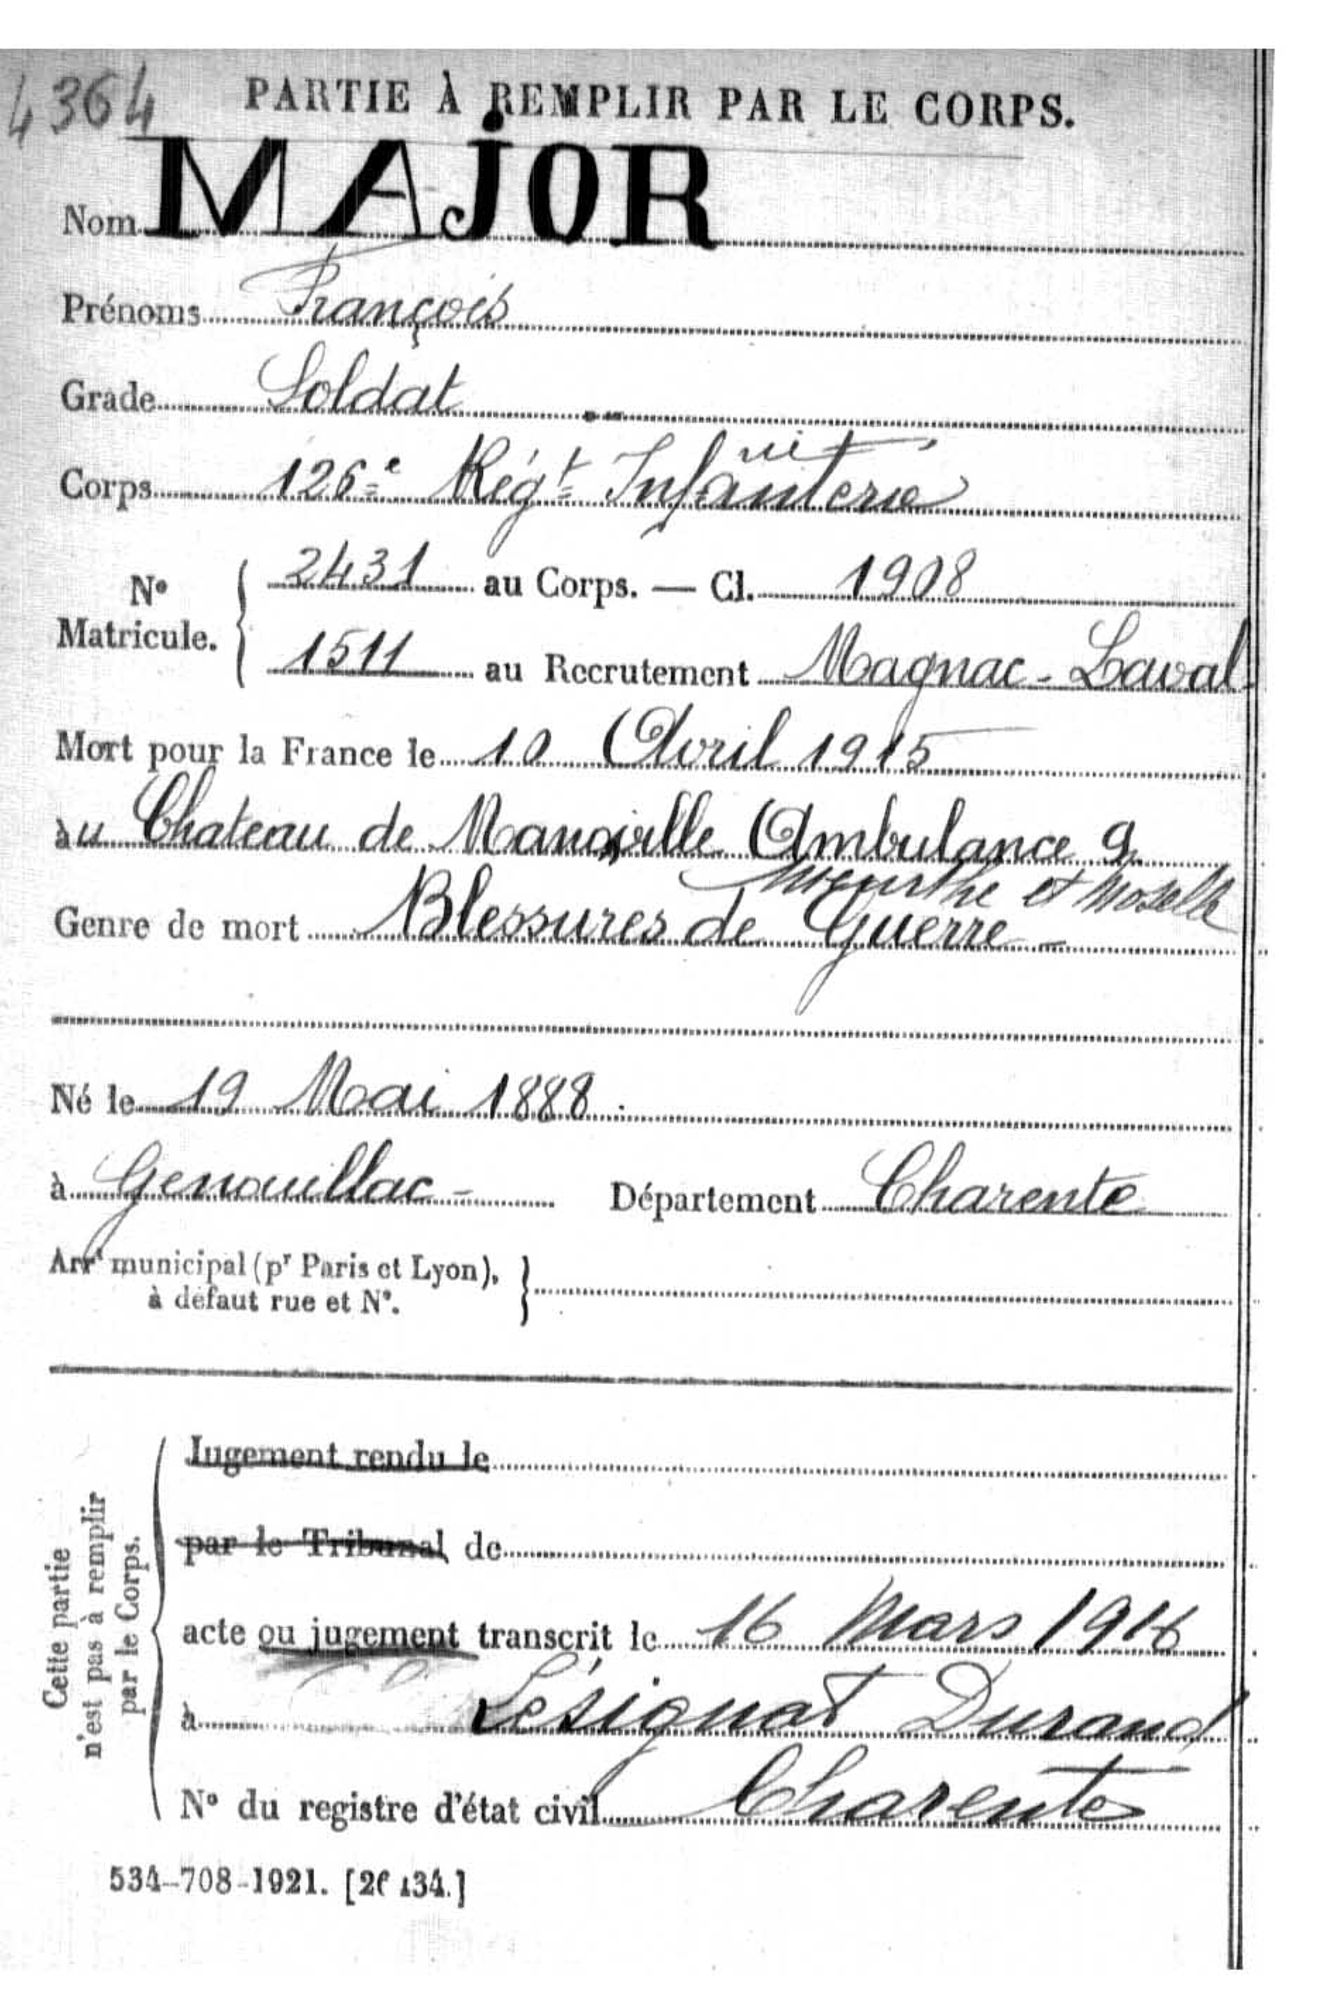 4364
PARTIE À REMPLIR PAR LE CORPS.
Nom MAJOR
Prénoms François
Grade Soldat
Corps 126e Régt Infanterie
No Matricule. { 2431 au Corps. — Cl. 1908
1511 au Recrutement Magnac-Laval
Mort pour la France le 10 Avril 1915
au Chateau de Manoville Ambulance 9
Meurthe et Moselle
Genre de mort Blessures de Guerre -
Né le 19 Mai 1888.
à Genouillac - Département Charente
Arrt municipal (pr Paris et Lyon),
à défaut rue et No. }
Cette partie
n'est pas à remplir
par le Corps.
Jugement rendu le
par le Tribunal de
acte ou jugement transcrit le 16 Mars 1916
à Lésignat Durand
No du registre d'état civil Charente
534-708-1921. [26134.]